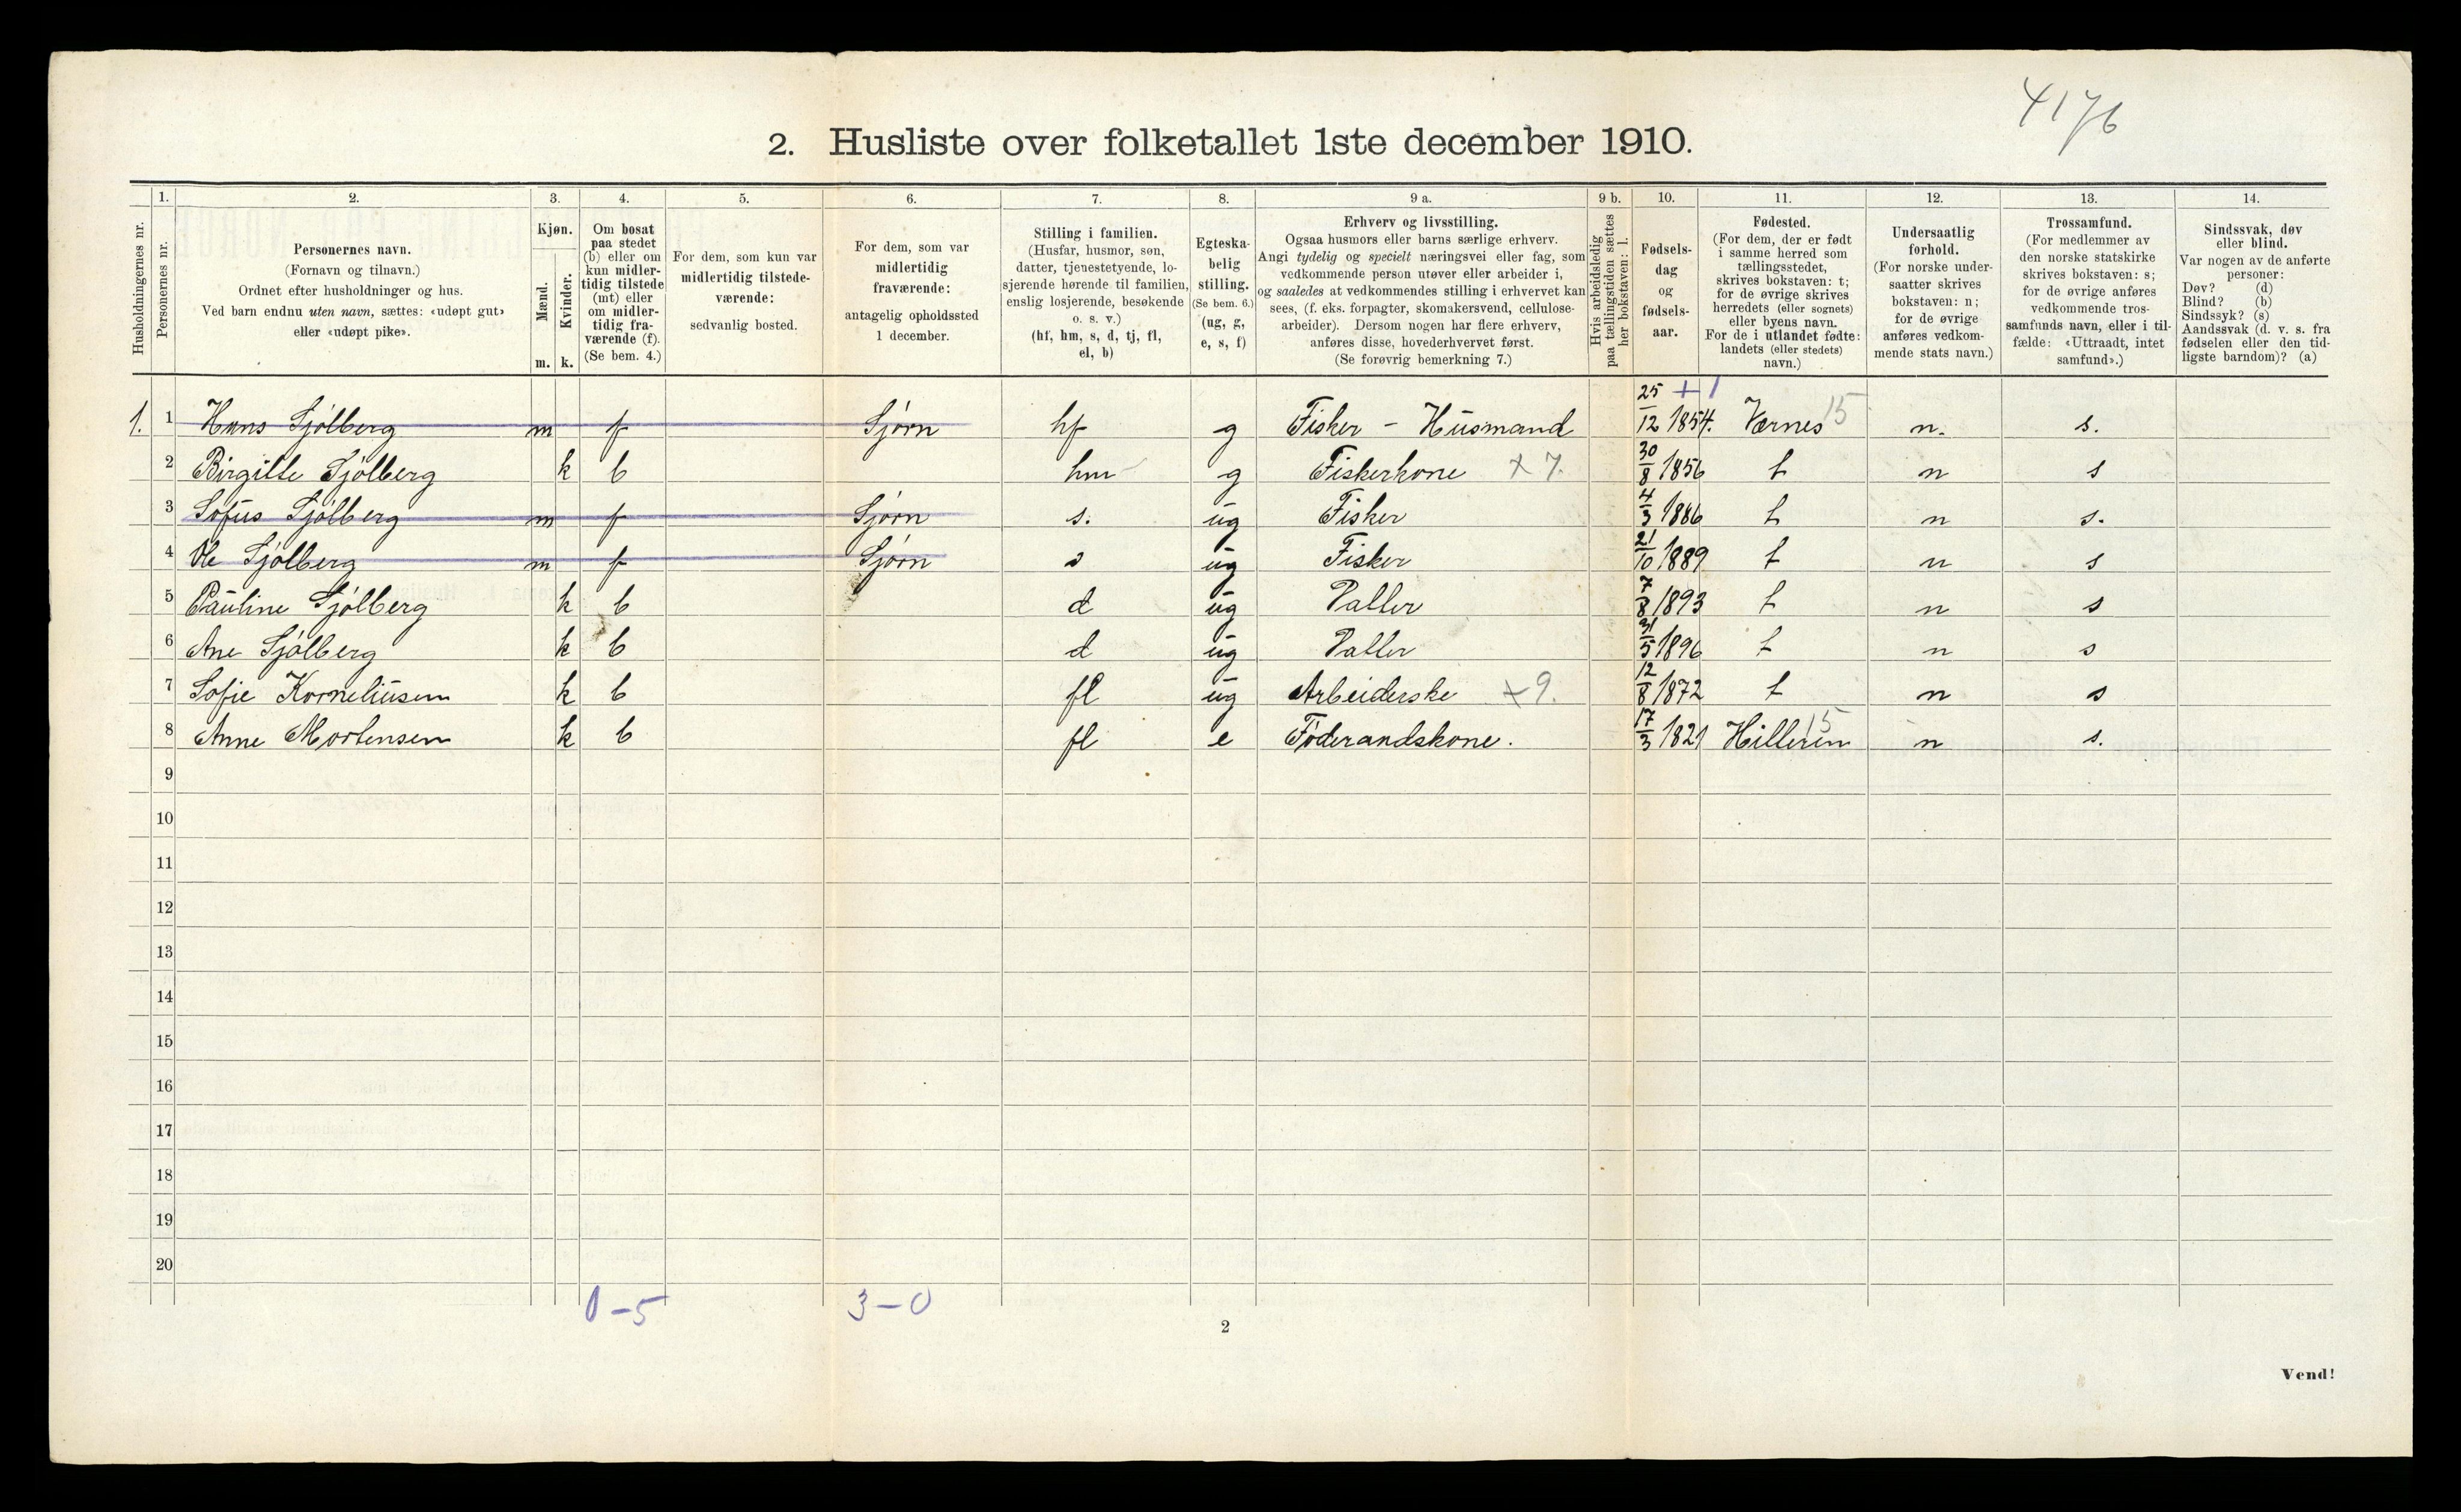 4176
2. Husliste over folketallet 1ste december 1910.
Husholdningernes nr.
1.
Personernes nr.
2.
Personernes navn.
(Fornavn og tilnavn.)
Ordnet efter husholdninger og hus.
Ved barn endnu uten navn, sættes: «udøpt gut»
eller «udøpt pike».
3.
Kjøn.
Mænd.
Kvinder.
m. k.
4.
Om bosat
paa stedet
(b) eller om
kun midler-
tidig tilstede
(mt) eller
om midler-
tidig fra-
værende (f).
(Se bem. 4.)
5.
For dem, som kun var
midlertidig tilstede-
værende:
sedvanlig bosted.
6.
For dem, som var
midlertidig
fraværende:
antagelig opholdssted
1 december.
7.
Stilling i familien.
(Husfar, husmor, søn,
datter, tjenestetyende, lo-
sjerende hørende til familien,
enslig losjerende, besøkende
o. s. v.)
(hf, hm, s, d, tj, fl,
el, b)
8.
Egteska-
belig
stilling.
(Se bem. 6.)
(ug, g,
e, s, f)
9 a.
Erhverv og livsstilling.
Ogsaa husmors eller barns særlige erhverv.
Angi tydelig og specielt næringsvei eller fag, som
vedkommende person utøver eller arbeider i,
og saaledes at vedkommendes stilling i erhvervet kan
sees, (f. eks. forpagter, skomakersvend, cellulose-
arbeider). Dersom nogen har flere erhverv,
anføres disse, hovederhvervet først.
(Se forøvrig bemerkning 7.)
9 b.
Hvis arbeidsledig
paa tællingstiden sættes
her bokstaven: l.
10.
Fødsels-
dag
og
fødsels-
aar.
11.
Fødested.
(For dem, der er født
i samme herred som
tællingsstedet,
skrives bokstaven: t;
for de øvrige skrives
herredets (eller sognets)
eller byens navn.
For de i utlandet fødte:
landets (eller stedets)
navn.)
12.
Undersaatlig
forhold.
(For norske under-
saatter skrives
bokstaven: n;
for de øvrige
anføres vedkom-
mende stats navn.)
13.
Trossamfund.
(For medlemmer av
den norske statskirke
skrives bokstaven: s;
for de øvrige anføres
vedkommende tros-
samfunds navn, eller i til-
fælde: «Uttraadt, intet
samfund».)
14.
Sindssvak, døv
eller blind.
Var nogen av de anførte
personer:
Døv? (d)
Blind? (b)
Sindssyk? (s)
Aandssvak (d. v. s. fra
fødselen eller den tid-
ligste barndom)? (a)
1. 1 Hans Sjølberg m f Sjøen hf g Fisker - Husmand 25/12 1854. + 1 Værnes 15 n. s.
2 Birgitte Sjølberg k b hm g Fiskerkone x 7. 30/8 1856 t n s
3 Sofus Sjølberg m f Sjøen s. ug Fisker 4/3 1886 t n s.
4 Ole Sjølberg m f Sjøen s ug Fisker 21/10 1889 t n s
5 Pauline Sjølberg k b d ug Datter 7/8 1893 t n s
6 Ane Sjølberg k b d ug Datter 31/5 1896 t n s
7 Sofie Korneliusen k b fl ug Arbeiderske x 9. 12/8 1872 t n s
8 Anne Mortensen k b fl e Föderaadskone. 17/3 1821 Hilleren 15 n s.
9
10
11
12
13
14
15
16
17
18
19
20
0 - 5 3 - 0
2
Vend!